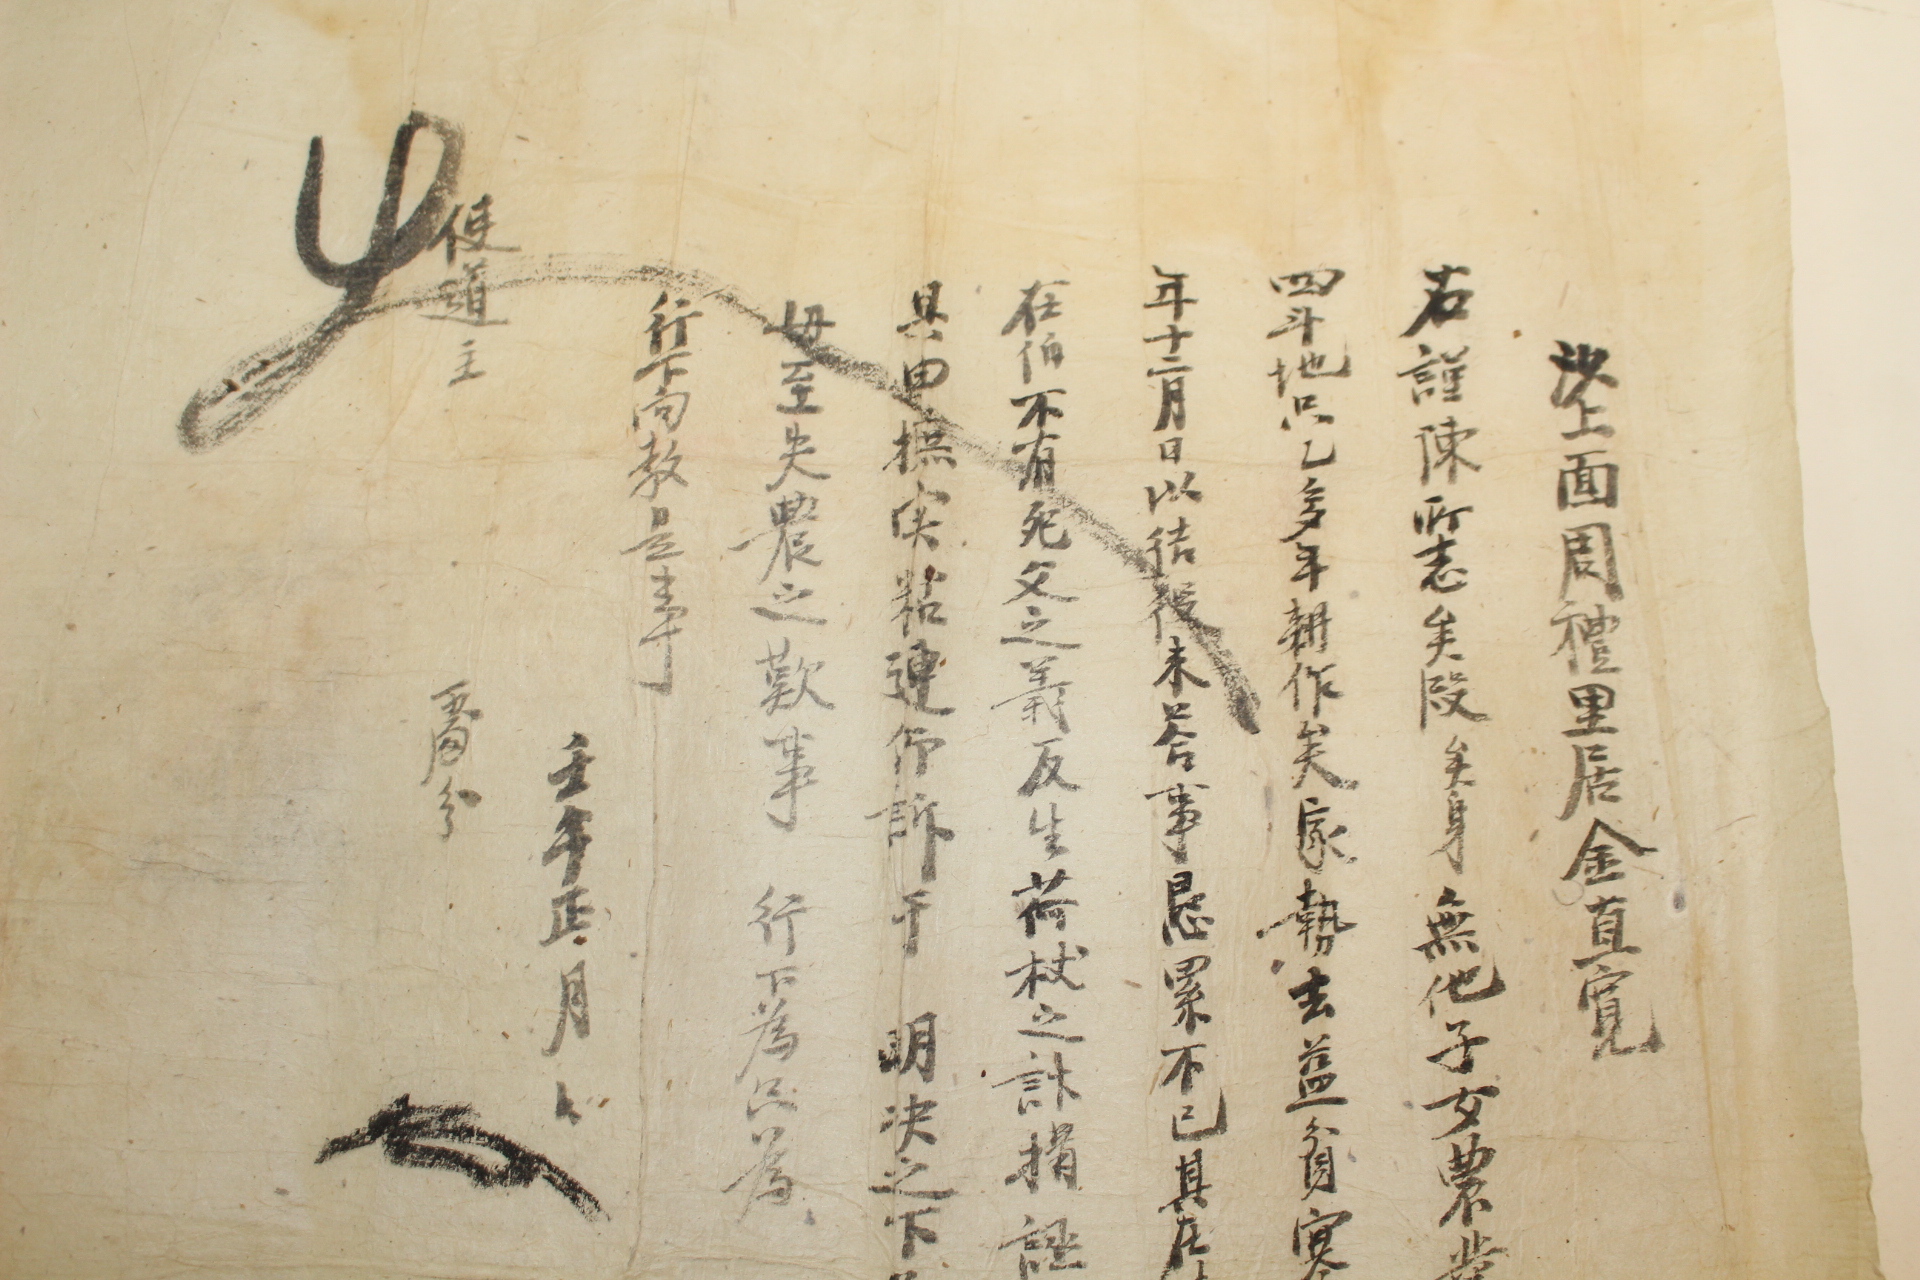 沙上面周禮里居金直寬
右謹陳所志矣段矣身無他子女農業
四斗地只乙多年耕作矣家勢去益貧寒
年十二月日以結役未答事恳累不已其在
在伯不有死父之義反生荷杖之訃捐誣
具由摭实粘連仰訴于 明決之下
毋至失農之歎事 行下為只為
行下向教是事
壬午正月
使道 主